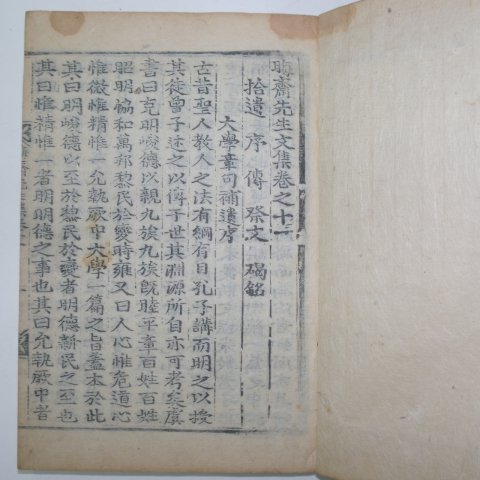 晦齋先生文集卷之十二
拾遺 序 傳 祭文 碣銘
大學章句補遺序
古昔聖人敎人之法有綱有目孔子講而明之以授
其徒曾子述之以傳于世其淵源所自亦可考矣虞
書曰克明峻德以親九族九族旣睦平章百姓百姓
昭明恊和萬邦黎民於變時雍又曰人心惟危道心
惟微惟精惟一允執厥中大學一篇之旨盖本於此
其曰明峻德以至於黎民於變者明德新民之至也
其曰惟精惟一者明明德之事也其曰允執厥中者